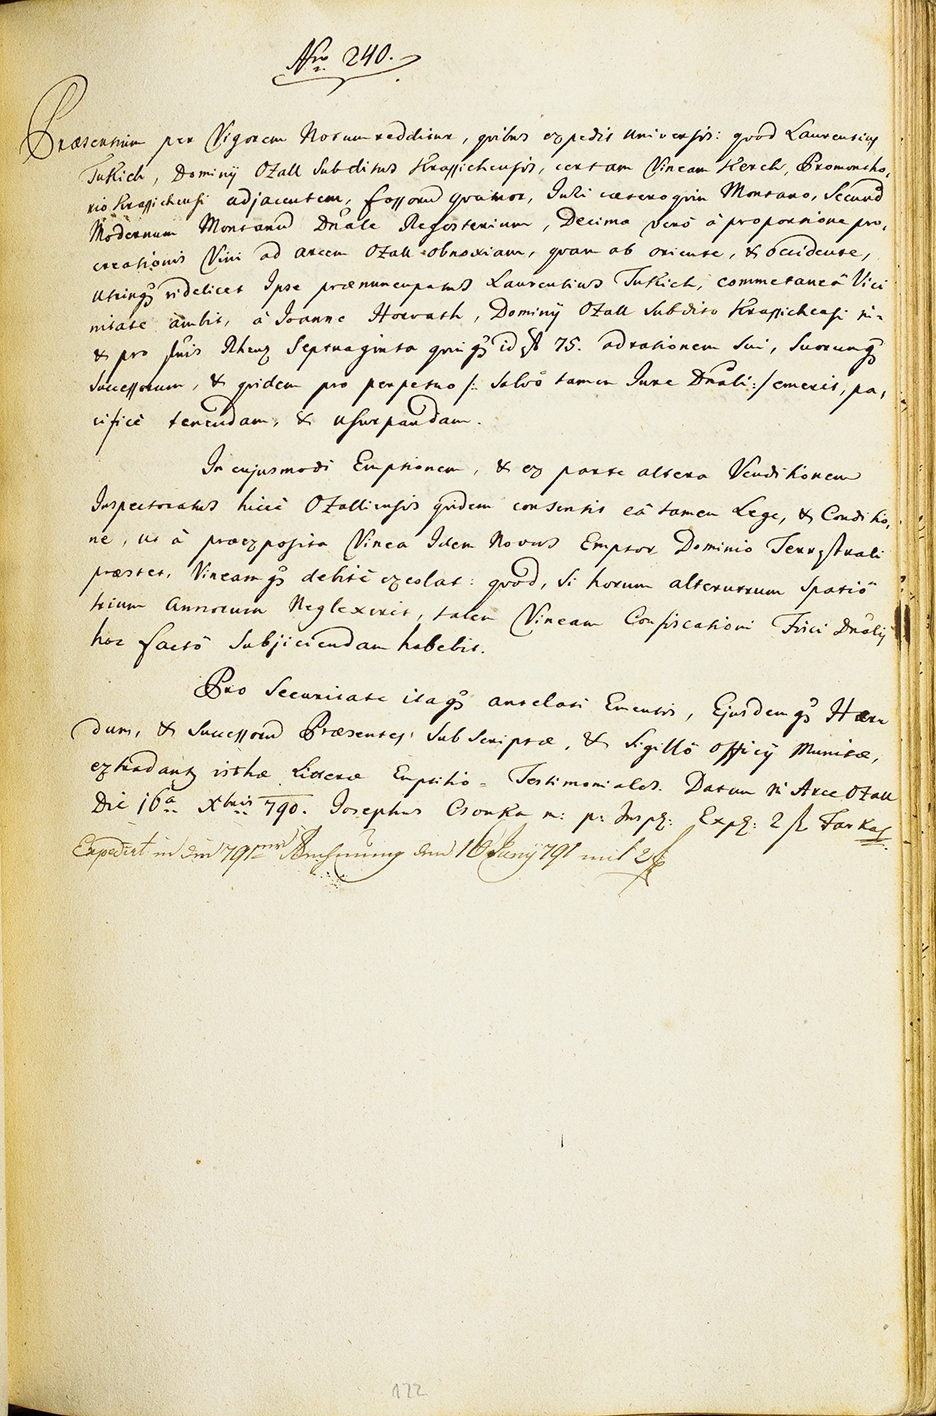 Nro 240.
Præsentium per Vigorem Notum redditur, quibus expedit universis: quod Laurentius
Tukich, Dominy Ozall Subditus Krassichensis, certam Vineam Kerch, Promontho,
rio Krassichensi adjacentem, fossorū quatuor, Juri cæteroquin Montano, Secund
Modernum Montanū Dnāle Regesterium, Decima verò à proportione pro,
creationis Vini ad arcem Ozall obnoxiam, quam ab oriente, & occidente,
utrinqз videlicet Ipse prænuncupatus Laurentius Tukich, commetaneâ Vici
nitate ambit, à Joanne Horvath, Dominy Ozall Subdito Krassichensi vi-
& pro fnis Rhenz Septuaginta quinqз id est 75. ad rationem sui, suorumqз
Successorum, & quidem pro perpetuo /: Salvô tamen Jure Dnāli :/ emerit, pa,
cificè tenendam, & usurpandam.
In cujusmodi Emptionem, & ex parte altera Venditionem
Inspectoratus hicce Ozalliensis quidem consentit eâ tamen Lege, & Conditio,
ne, ut à præexposita Vinea Idem Novus Emptor Dominio Terrestrali
præstet, Vineamqз debitè excolat: quod, si horum alterutrum Spatiô
trium Annorum Neglexerit, talem Vineam Confiscationi Fisci Dnālis
hoc factô Subjiciendam habebit.
Pro Securitate itaqз antelati Ementis, Ejusdemqз Hære
dum, & Successorū Præsentes, Subscriptæ, & Sigillô officy Munitæ,
extradantur isthæ Litteræ Emptitio = Testimoniales. Datum in Arce Ozall
Die 16a Xbris 790. Josephus Csonka m: p: Insp: Exp: 2 f Farkas
Expedirt in der 791ner Rechnung den 16 Juny 791 mit 2 f
122